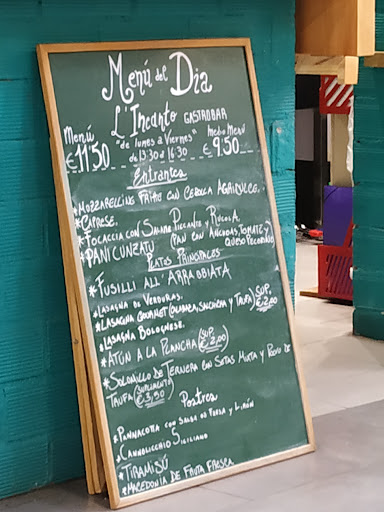 Menú del Dia
L'Incanto GASTROBAR
Menú "de lunes a Viernes" Medio Menú
€11'50 de 13:30 a 16:30 €9.50
Entrantes
*MOZZARELLINE FRITTO CON CEBOLLA AGRIDULCE.
*CAPRESE.
*FOCACCIA CON SALAME PICCANTE Y RUCULA.
*PANI CUNZATU (PAN CON ANCHOAS, TOMATE Y
QUESO PECORINO
PLATOS PRINCIPALES
*FUSILLI ALL'ARRABBIATA
*LASAGNA DE VERDURAS.
*LASAGNA GOURMET (BURRATA, SALCHICHA Y TRUFA) SUP. €2,00
*LASAGNA BOLOGNESE.
*ATÚN A LA PLANCHA (SUP. €2,00)
*SOLOMILLO DE TERNERA CON SETAS MIXTA Y POLVO DE
TRUFA (SUPLEMENTO €3,50)
Postres
*PANNACOTTA CON SALSA DE FRESA Y LIMÓN
*CANNOLICCHIO SICILIANO
*TIRAMISÚ
*MACEDONIA DE FRUTA FRESCA